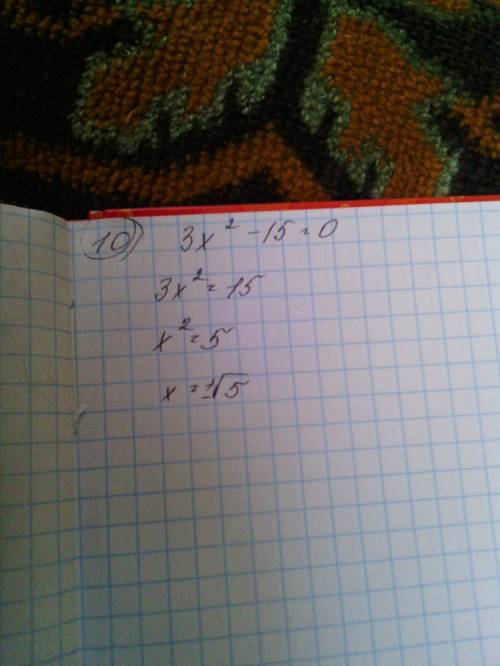 10) 3x² - 15 = 0
3x² = 15
x² = 5
x = ±√5